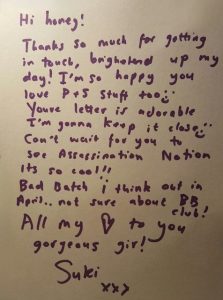 Hi honey!
Thanks so much for getting
in touch, brightend up my
day! I'm so happy you
love P+S stuff too :)
Youre letter is adorable
I'm gonna keep it close :)
Can't wait for you to
see Assassination Nation
its so cool!!!
Bad Batch i think out in
April.. not sure about BB
club!
All my ♡ to you
gorgeous girl!
Suki
xx>